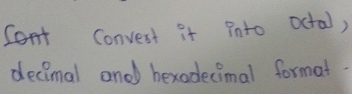 Convest it into octal,
decimal and hexadecimal format.